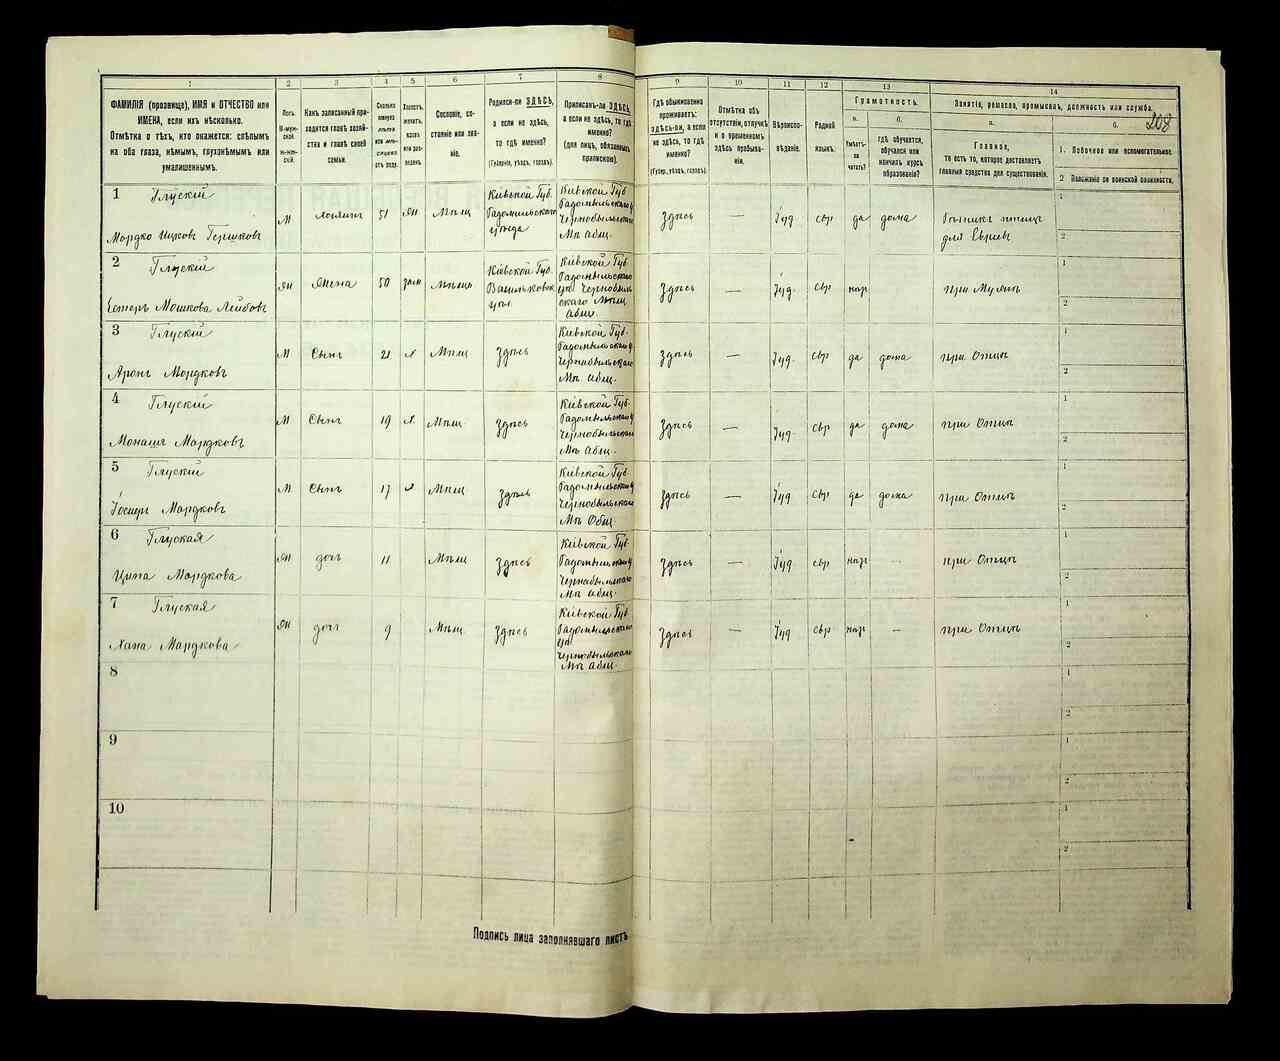 208
1 2 3 4 5 6 7 8 9 10 11 12 13 14
ФАМИЛІЯ (прозвище), ИМЯ и ОТЧЕСТВО или
ИМЕНА, если ихъ нѣсколько.
Отмѣтка о тѣхъ, кто окажется: слѣпымъ
на оба глаза, нѣмымъ, глухонѣмымъ или
умалишеннымъ.
Полъ.
М-муж-
ской.
Ж-жен-
скій.
Какъ записанный при-
ходится главѣ хозяй-
ства и главѣ своей
семьи.
Сколько
минуло
лѣтъ
или мѣ-
сяцевъ
отъ роду.
Холостъ,
женатъ,
вдовъ
или раз-
веденъ
Сословіе, со-
стояніе или зва-
ніе.
Родился-ли ЗДѢСЬ,
а если не здѣсь,
то гдѣ именно?
(Губернія, уѣздъ, городъ).
Приписанъ-ли ЗДѢСЬ,
а если не здѣсь, то гдѣ
именно?
(для лицъ, обязанныхъ
припискою).
Гдѣ обыкновенно
проживаетъ:
здѣсь-ли, а если
не здѣсь, то гдѣ
именно?
(Губер., уѣздъ, городъ).
Отмѣтка объ
отсутствіи, отлучкѣ
и о временномъ
здѣсь пребыва-
ніи.
Вѣроиспо-
вѣданіе.
Родной
языкъ.
Грамотность.
а. б.
Умѣетъ-
ли
читать?
гдѣ обучается,
обучался или
кончилъ курсъ
образованія?
Занятія, ремесло, промыселъ, должность или служба.
а. б.
Главное,
то есть то, которое доставляетъ
главныя средства для существованія.
1. Побочное или вспомогательное.
2 Положеніе по воинской повинности.
1 Глускій
Мордко Ицковъ Гершковъ
М 51 жн Мѣщ
Кіевской Губ.
Радомысльского
уѣзда
Кіевской Губ
Радомысльскаго у
Чернобыльскаго
Мѣ Общ.
Здѣсь — Іуд евр да дома
для Евреевъ
2 Глускій
Естеръ Мошкова Лейбовъ
Ж Жена 50 зам Мѣщ
Кіевской Губ.
Васильковск
уѣз.
Кіевской Губ.
Общ.
Здѣсь — Іуд. евр нѣт при Мужѣ
3 Глускій
Аронъ Мордковъ
М Сынъ 21 х Мѣщ Здѣсь
Кіевской Губ.
Радомысльскаго у
Чернобыльскаго
Мѣ Общ.
Здѣсь — Іуд. евр да дома при Отцѣ
4 Глускій
Монашъ Мордковъ
М Сынъ 19 х. Мѣщ Здѣсь
Кіевской Губ.
Радомысльскаго у
Чернобыльскаго
Мѣ Общ.
Здѣсь — Іуд. евр да дома при Отцѣ
5 Глускій
Іосифъ Мордковъ
М Сынъ 17 х Мѣщ Здѣсь
Кіевской Губ.
Радомысльскаго у
Чернобыльскаго
Мѣ Общ.
Здѣсь — Іуд евр да дома при Отцѣ
6 Глуская
Ципа Мордкова
Ж дочь 11 Мѣщ Здѣсь
Кіевской Губ
Радомысльскаго у
Чернобыльскаго
Мѣ общ.
Здѣсь — Іуд евр нѣт — при Отцѣ
7 Глуская
Хана Мордкова
Ж дочь 9 Мѣщ Здѣсь
Кіевской Губ.
Радомысльскаго
уѣ
Чернобыльскаго
Мѣ общ.
Здѣсь — Іуд евр нѣт — при Отцѣ
8
9
10
Подпись лица заполнявшаго листъ